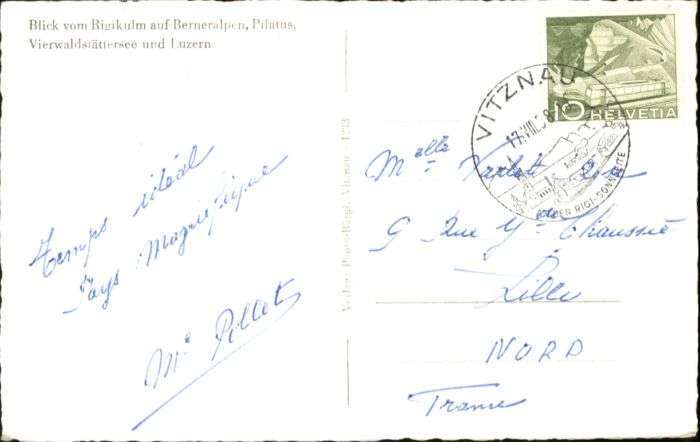 Blick vom Rigikulm auf Berneralpen, Pilatus,
Vierwaldstättersee und Luzern
Temps idéal
Pays Magnifique
Me Pillet
Verlag: Photo-Bürgi, Vitznau
10 HELVETIA
VITZNAU
17.VIII.5
RIGI-SONNSEITE
Melle
9 Rue Chaussée
Lille
NORD
France